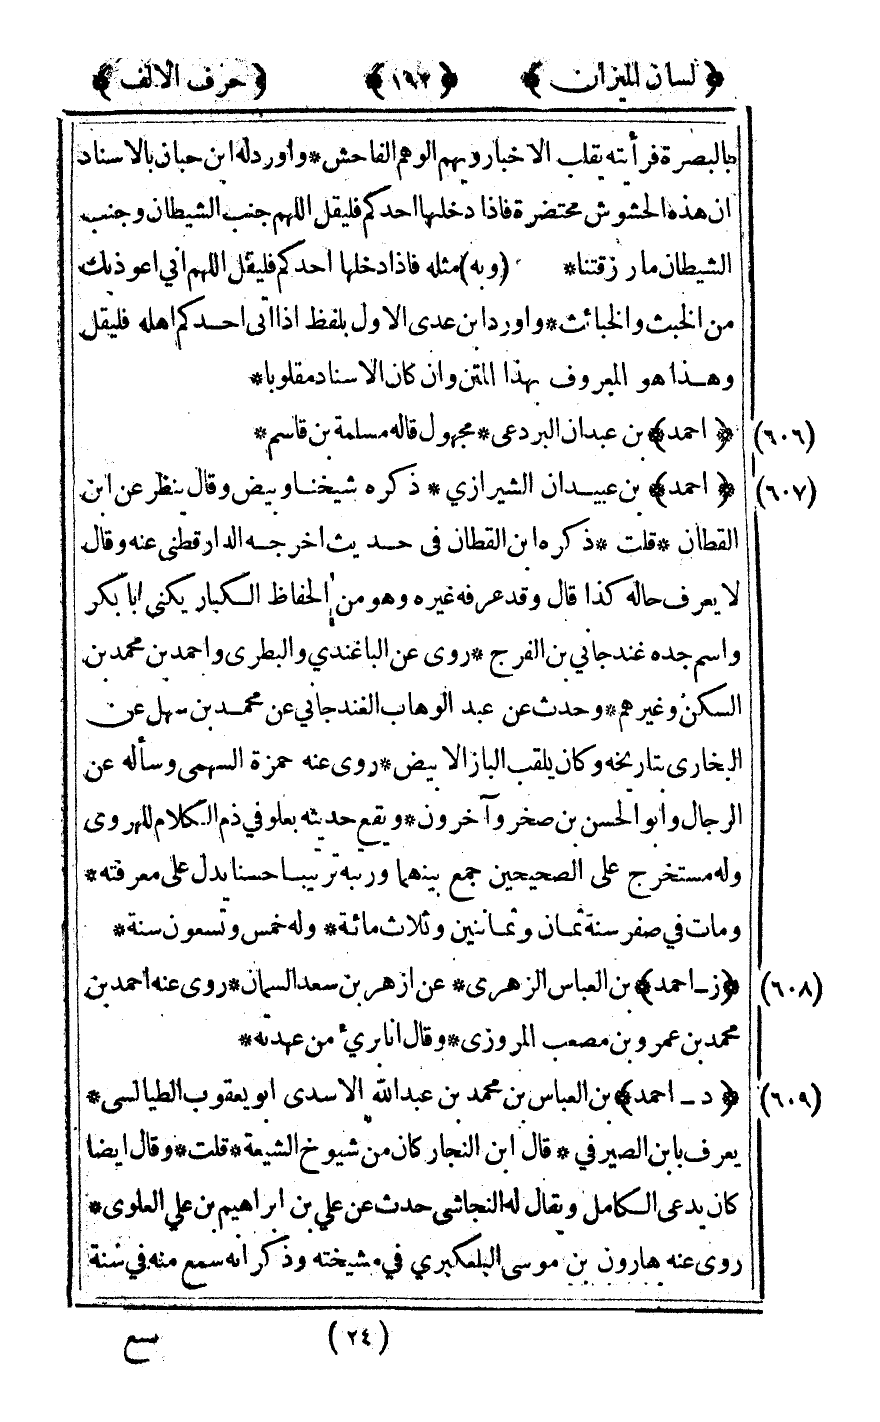 ﴿ لسان الميزان ﴾ ﴿ ١٩٣ ﴾ ﴿ حرف الالف ﴾
بالبصرة فرأيته يقلب الاخبار ويهم الوهم الفاحش * واورد له ابن حبان بالاسناد
ان هذه الحشوش محتضرة فاذا دخلها احدكم فليقل اللهم جنب الشيطان وجنب
الشيطان ما رزقتنا * (وبه) مثله فاذا دخلها احدكم فليقل اللهم اني اعوذ بك
من الخبث والخبائث * واورد ابن عدى الاول بلفظ اذا اتى احدكم اهله فليقل
وهذا هو المعروف بهذا المتن وان كان الاسناد مقلوبا *
﴿ احمد ﴾ بن عبدان البردعى * مجهول قاله مسلمة بن قاسم * (٦٠٦)
﴿ احمد ﴾ بن عبيدان الشيرازي * ذكره شيخنا وبيض وقال ينظر عن ابن (٦٠٧)
القطان * قلت * ذكره ابن القطان فى حديث اخرجه الدارقطنى عنه وقال
لا يعرف حاله كذا قال وقد عرفه غيره وهو من الحفاظ الكبار يكنى ابا بكر
واسم جده غندجاني بن الفرج * روى عن الباغندي والبطرى واحمد بن محمد بن
السكن وغيرهم * وحدث عن عبد الوهاب الغندجاني عن محمد بن سهل عن
البخارى بتاريخه وكان يلقب الباز الابيض * روى عنه حمزة السهمى وسأله عن
الرجال وابو الحسن بن صخر وآخرون * ويقع حديثه بعلو في ذم الكلام للهروى
وله مستخرج على الصحيحين جمع بينهما ورتبه ترتيبا حسنا يدل على معرفته *
ومات في صفر سنة ثمان وثمانين وثلاث مائة * وله خمس وتسعون سنة *
﴿ ز ـ احمد ﴾ بن العباس الزهرى * عن ازهر بن سعد السمان * روى عنه احمد بن (٦٠٨)
محمد بن عمرو بن مصعب المروزى * وقال انا بريء من عهدته *
﴿ د ـ احمد ﴾ بن العباس بن محمد بن عبدالله الاسدى ابو يعقوب الطيالسى * (٦٠٩)
يعرف بابن الصيرفي * قال ابن النجار كان من شيوخ الشيعة * قلت * وقال ايضا
كان يدعى الكامل ويقال له النجاشى حدث عن علي بن ابراهيم بن علي العلوى *
روى عنه هارون بن موسى البلعكبري في مشيخته وذكر انه سمع منه في سنة
(٢٤) سبع